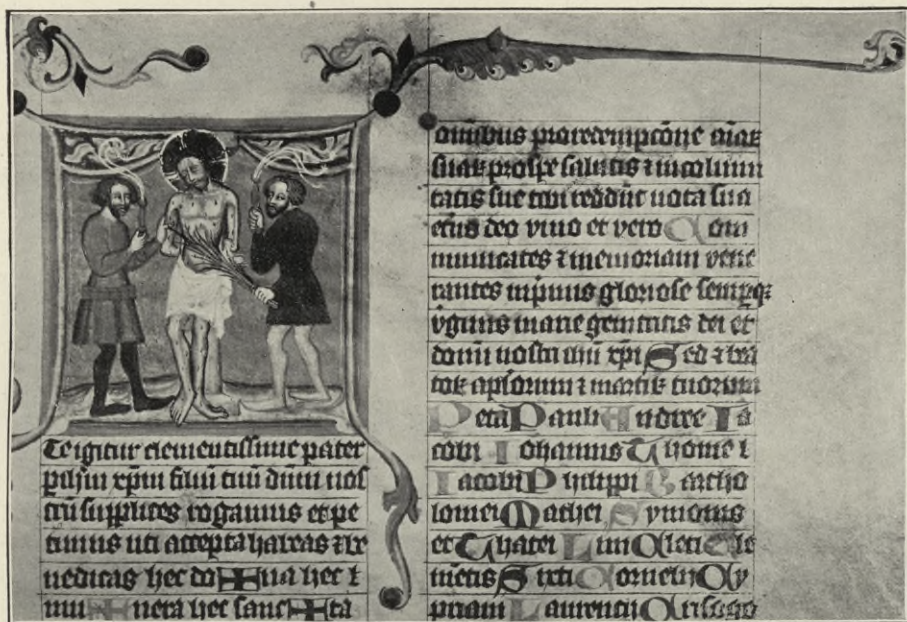 Te igitur clementissime pater
p ihm xpm filiū tuū dnm nos
trū supplices rogamus et pe
timus uti accepta habeas ⁊ be
nedicas hec do✠na hec ⁊
mu✠nera hec sanc✠ta
omibus pro redempcōne aīaꝝ
suaꝝ pro spe salutis ⁊ incolumi
tatis sue tibi reddūt uota sua
etno deo vivo et vero Com
municātes ⁊ memoriam vene
rantes inpmis gloriose sempqꝫ
vginis marie genitcis dei et
domī nostri ihū xpi Sed ⁊ bea
toꝝ aplorum ⁊ martiꝝ tuorum
Petri Pauli Andree Ia
cobi Iohannis Thome ⁊
Iacobi Philippi Bartho
lomei Mathei Symonis
et Thatei Lini Cleti Cle
mētis Sixti Cornelij Cy
priani Laurencij Crisogo